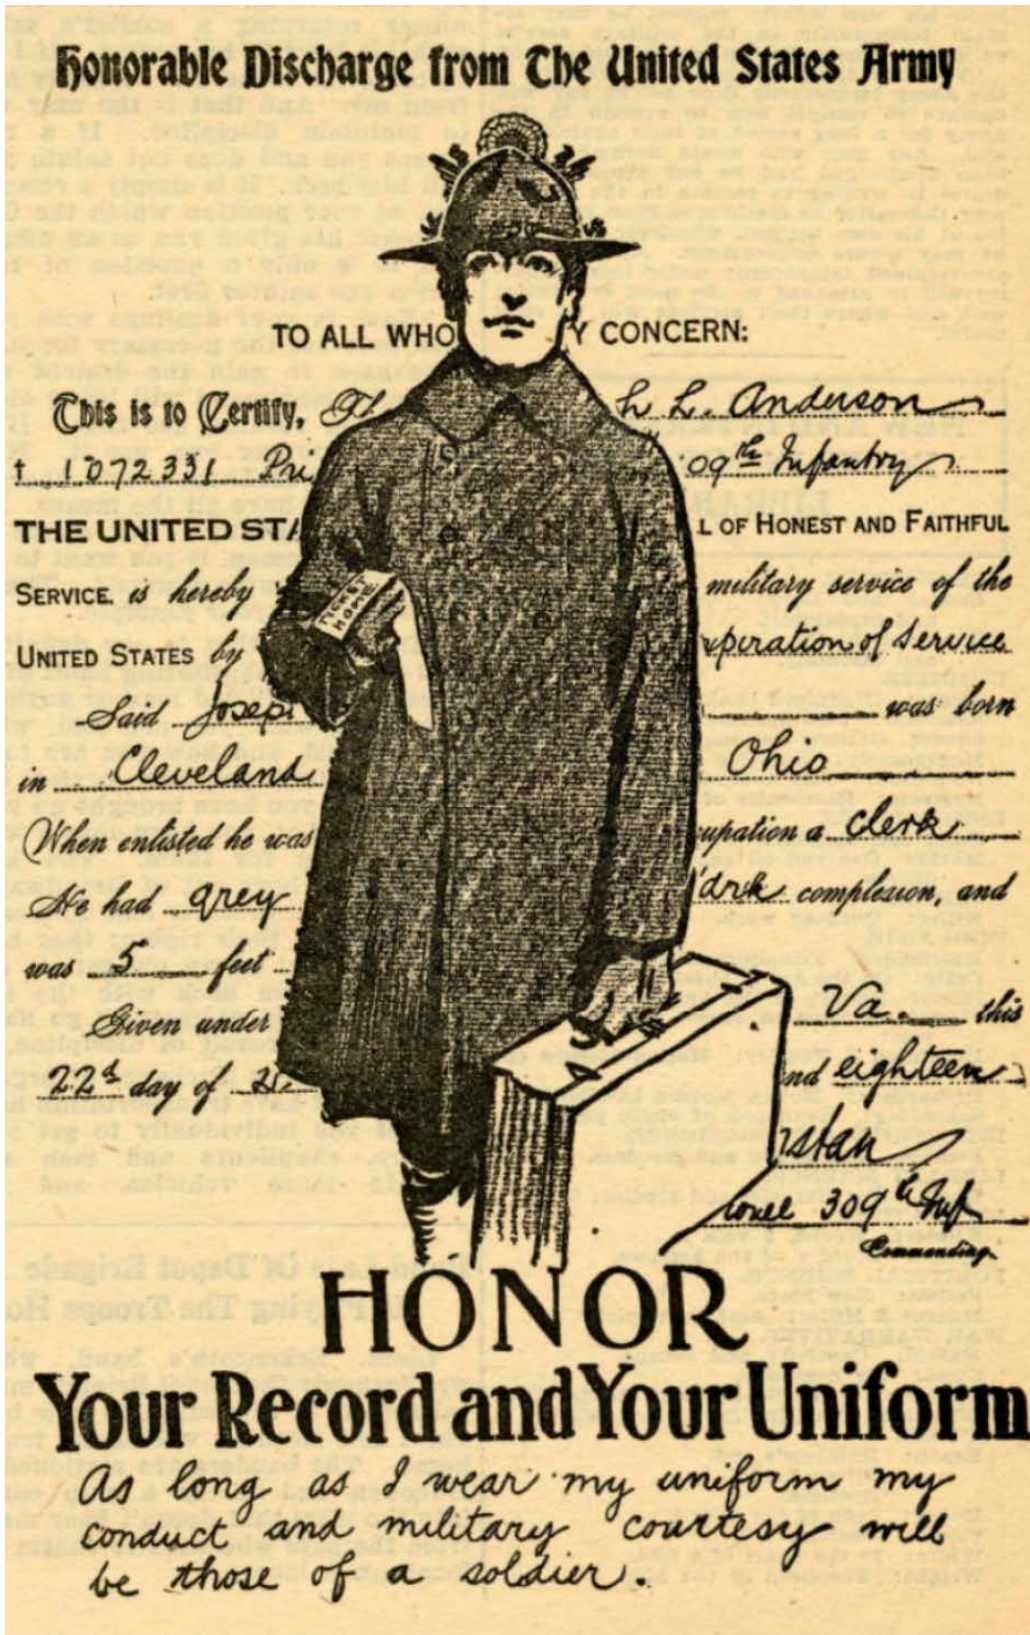 Honorable Discharge from The United States Army
TO ALL WHO Y CONCERN:
This is to Certify, Th h L. Anderson
† 1072331 Pri 09th Infantry
THE UNITED STA L OF HONEST AND FAITHFUL
SERVICE. is hereby military service of the
UNITED STATES by xpiration of Service
Said Josep was born
in Cleveland Ohio
When enlisted he was cupation a clerk
He had grey drk complexion, and
was 5 feet
Given under Va. this
22d day of nd eighteen
TICKET HOME
rstan
lonel 309th Inf
Commanding
HONOR
Your Record and Your Uniform
As long as I wear my uniform my
conduct and military courtesy will
be those of a soldier.